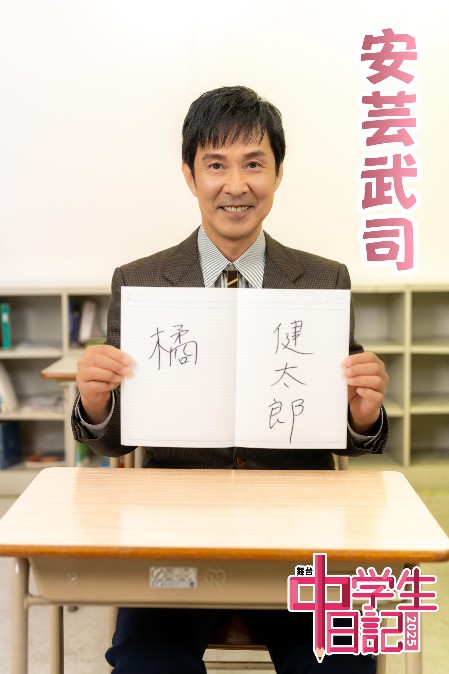 安芸武司
橘
健太郎
舞台
中学生
日記
2025